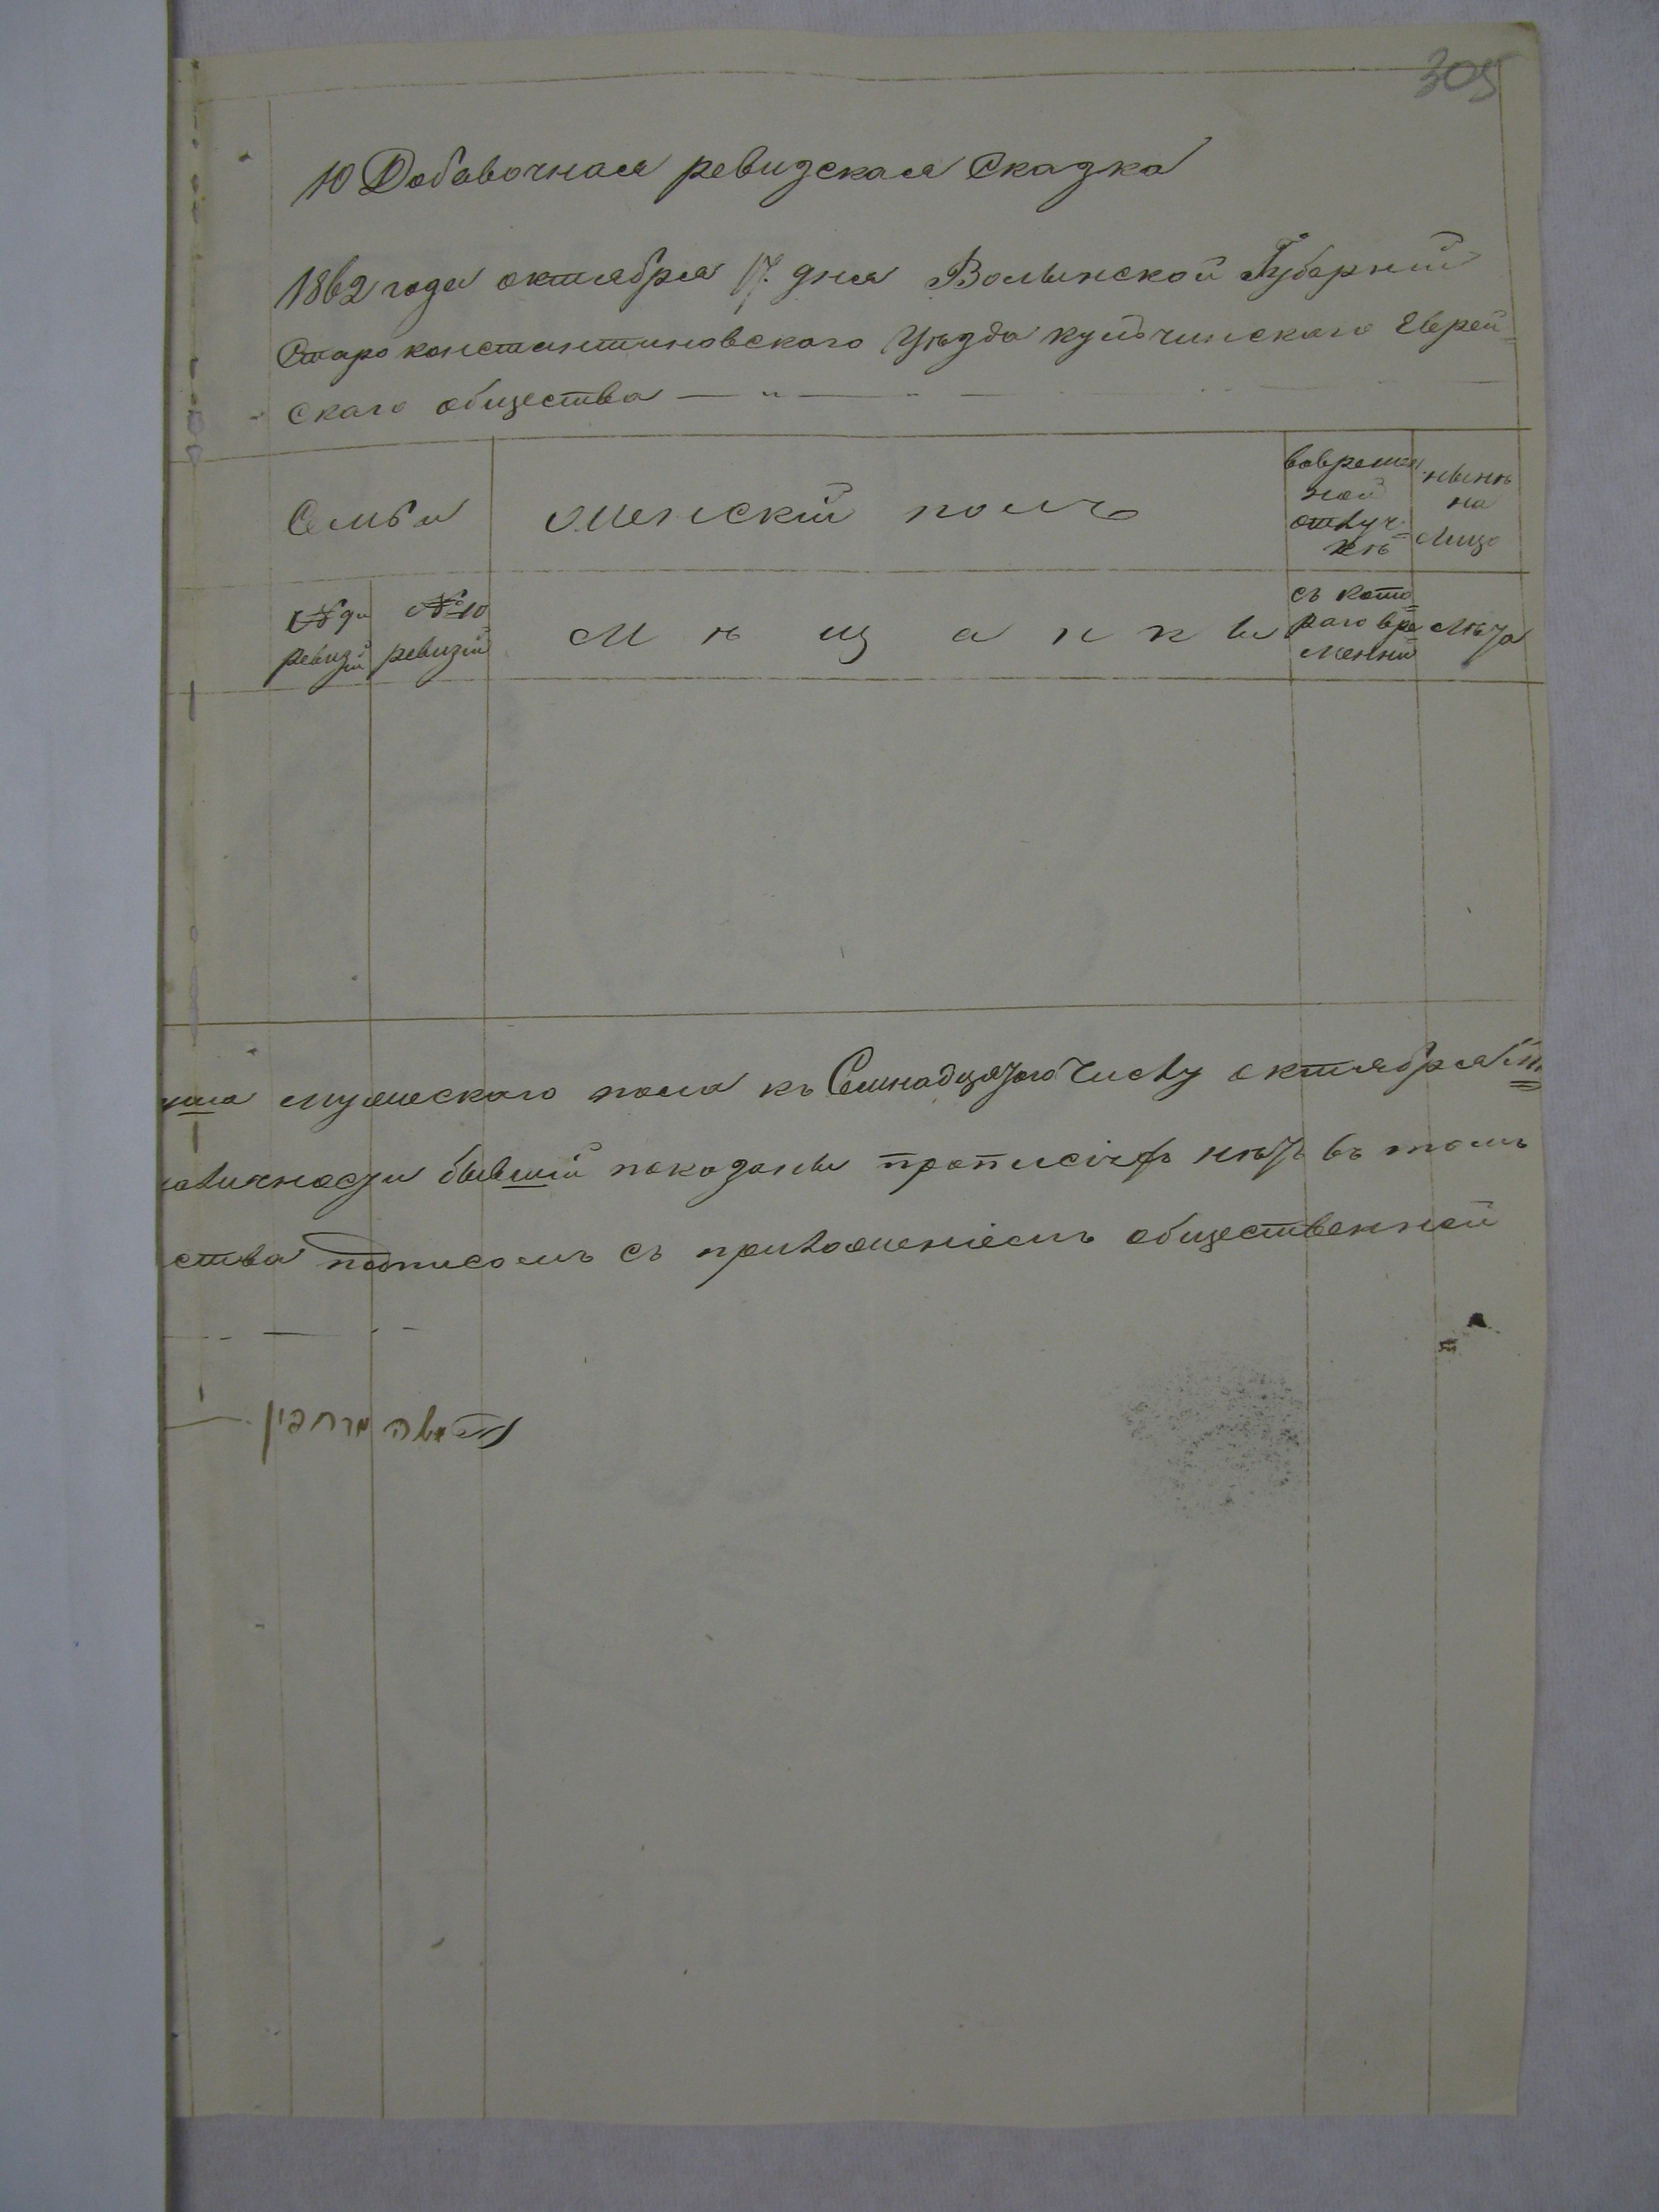 305
10 Добавочная ревизская Сказка
1862 года октября 17 дня Волынской Губерніи
Старо константиновского Уѣзда кульчинскаго Еврей=
скаго общества
Семьи
женскій полъ
вовремен
ной
отлуч=
кѣ
нынѣ
на
Лицо
№ 9и
ревизіи
№ 10
ревизіи
М ѣ щ а н к и
съ кото=
раго вре=
менни
Лѣта
мужескаго пола къ Семнадцатого Числу октября
бывшій показаны нѣтъ въ томъ
ства подписомъ съ приложеніемъ общественной
משה